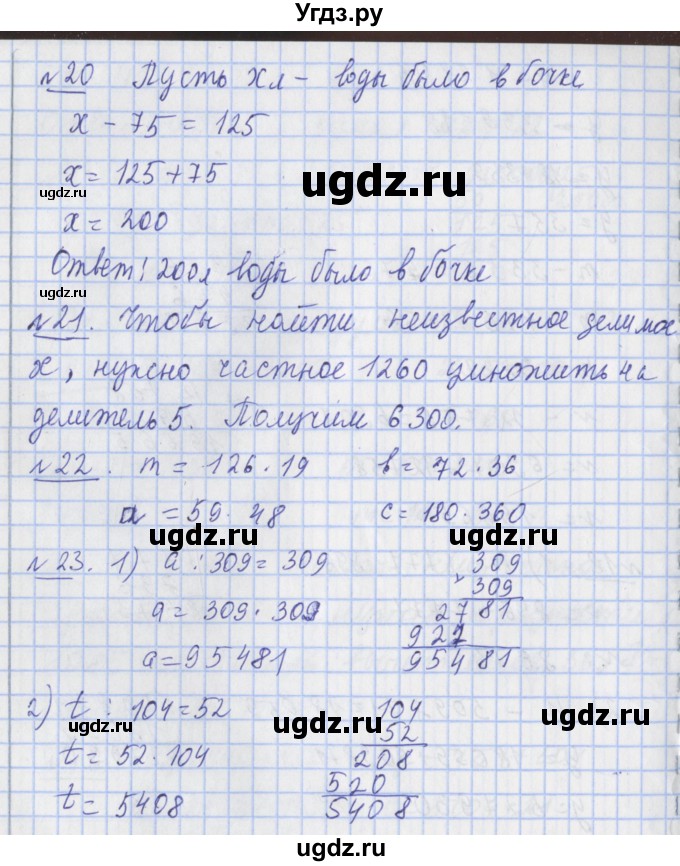 Угдз.ру
№20 Пусть x л - воды было в бочке
x - 75 = 125
ugdz.ru
x = 125 + 75
ugdz.ru
x = 200
Ответ! 200 л воды было в бочке
ugdz.ru ugdz.ru
№21. Чтобы найти неизвестное делимое
x, нужно частное 1260 умножить на
делитель 5. Получим 6300.
№22. m = 126 · 19 b = 72 · 36
a = 59 · 48 c = 180 · 360
ugdz.ru ugdz.ru
№23. 1) a : 309 = 309 309
× 309
a = 309 · 309 2781
927
a = 95481 95481
ugdz.ru ugdz.ru
2) t : 104 = 52 104
52
t = 52 · 104 208
520
t = 5408 5408
ugdz.ru